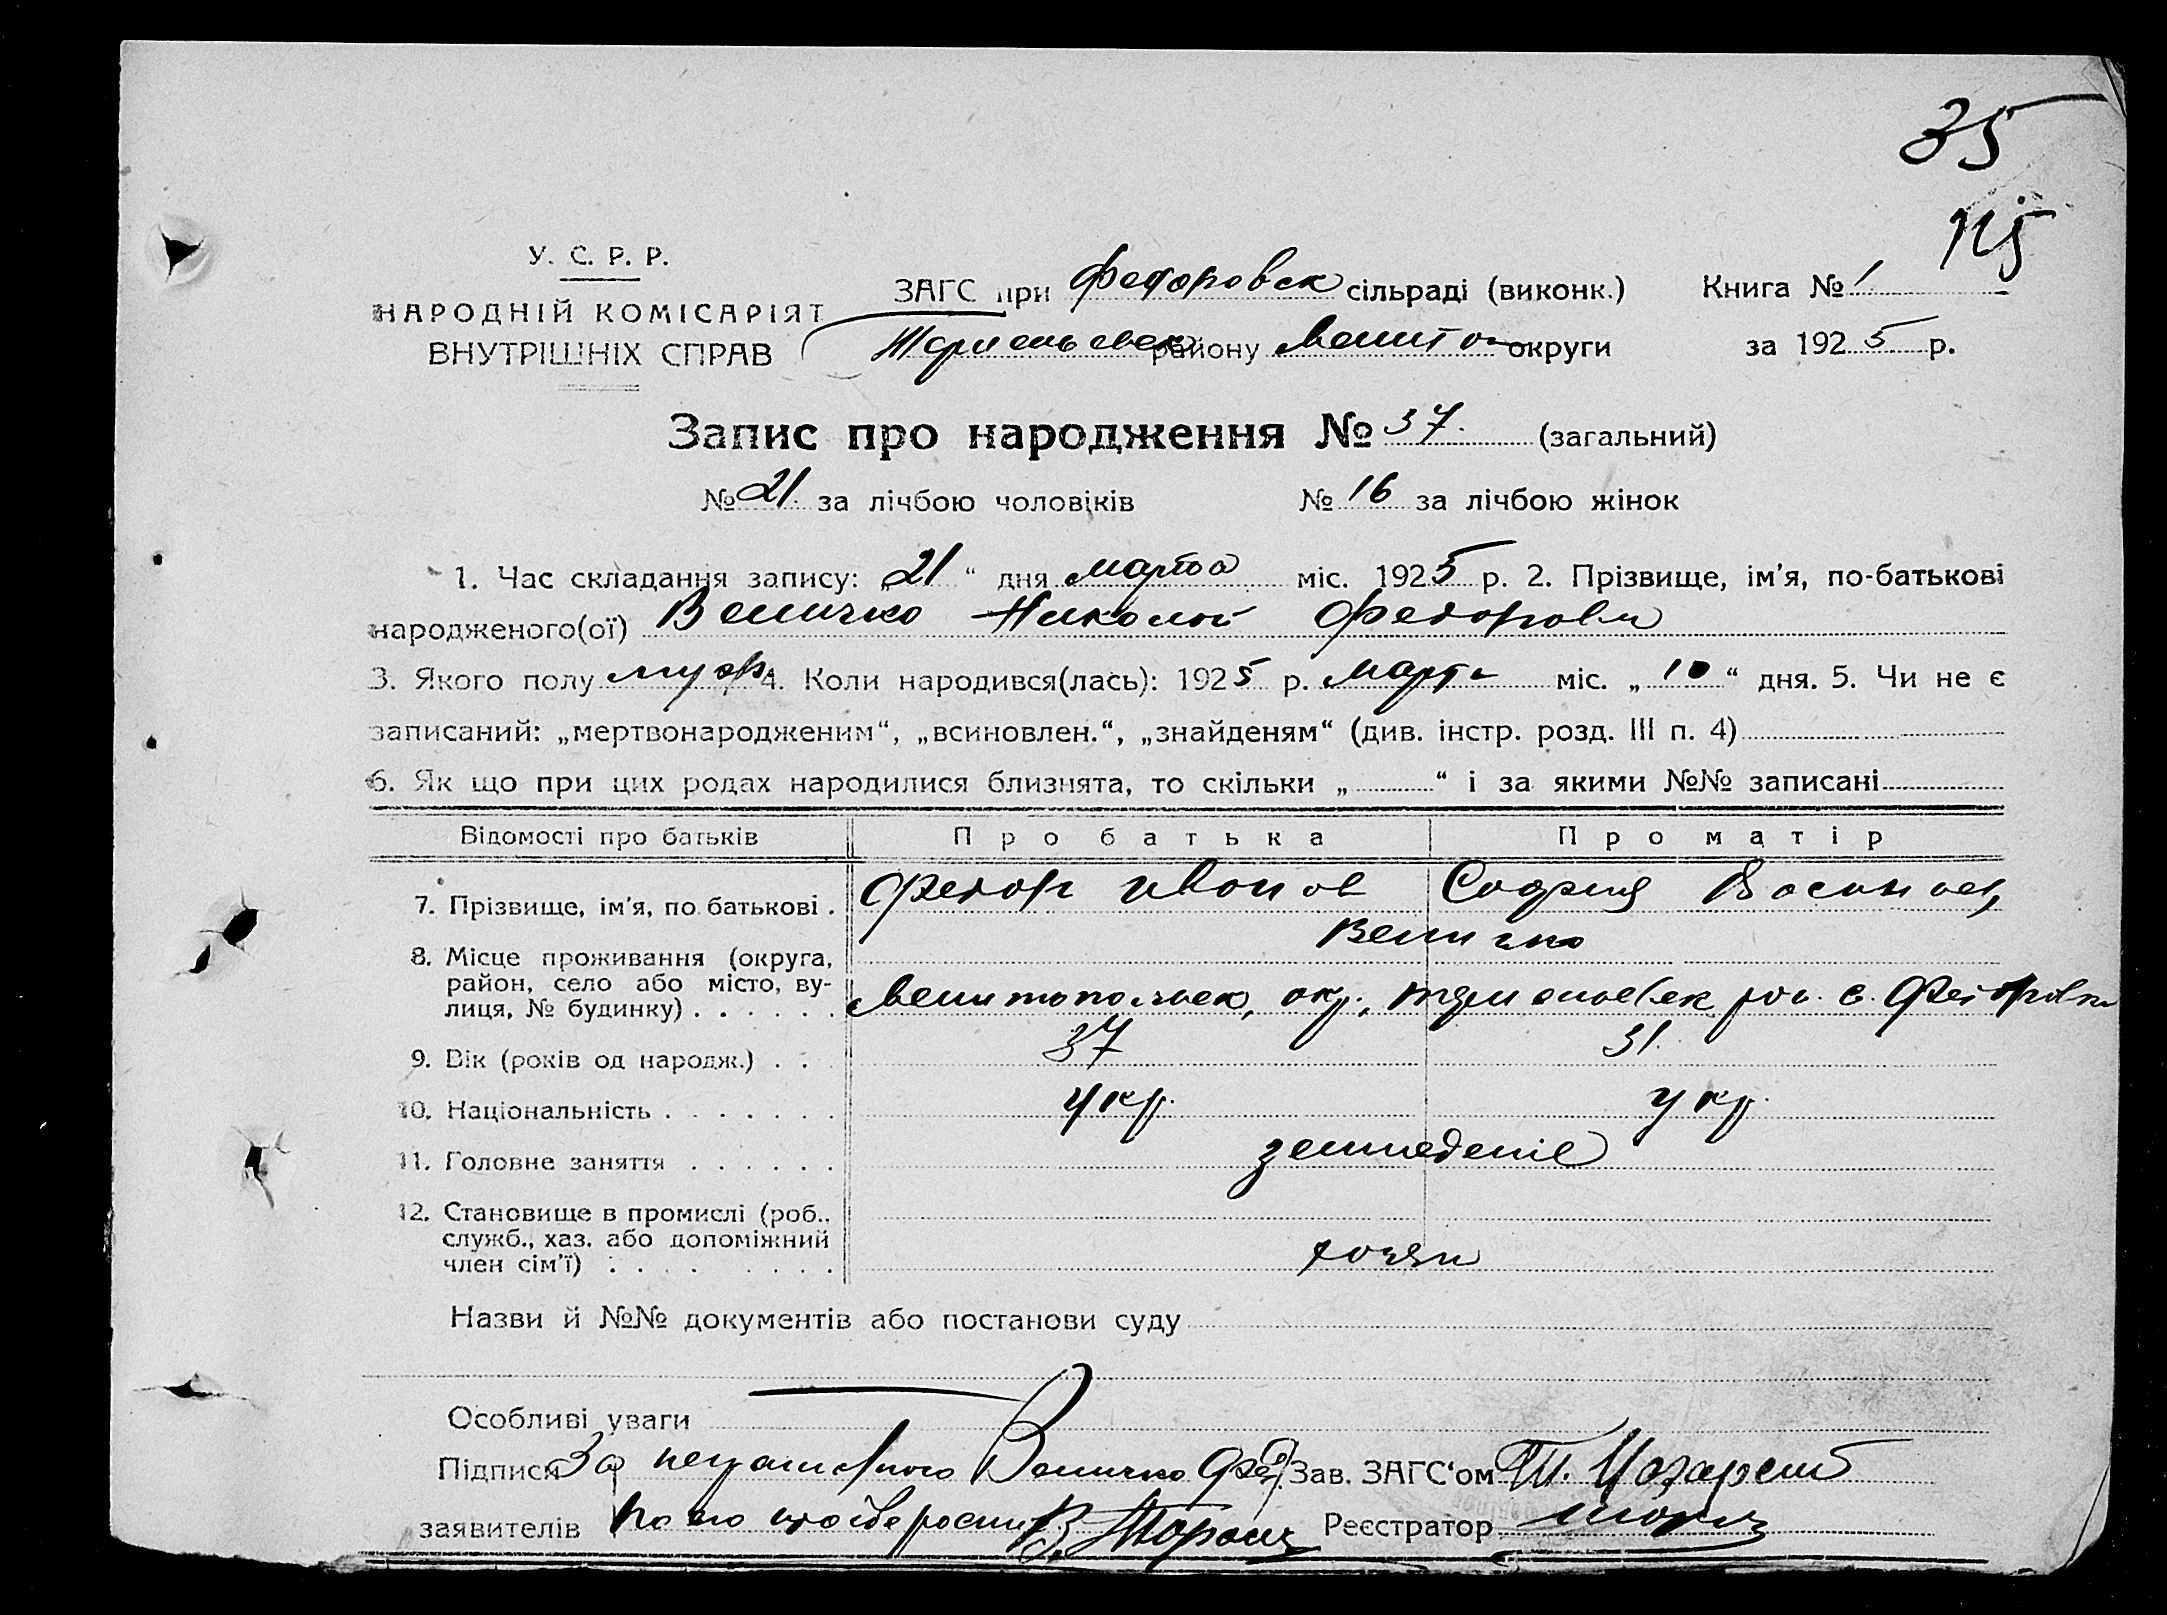 35
У. С. Р. Р.
НАРОДНІЙ КОМІСАРІЯТ
ВНУТРІШНІХ СПРАВ
ЗАГС при Федоровск сільраді (виконк.) Книга № 1
району округи за 1925 р.
Запис про народження № 37. (загальний)
№ 21 за лічбою чоловіків № 16 за лічбою жінок
1. Час складання запису: „21“ дня марта міс. 1925 р. 2. Прізвище, ім’я, по-батькові
народженого(ої) Величко Николай Федоров
3. Якого полу муж 4. Коли народився(лась): 1925 р. марта міс. „10“ дня. 5. Чи не є
записаний: „мертвонародженим“, „всиновлен.“, „знайденям“ (див. інстр. розд. III п. 4)
6. Як що при цих родах народилися близнята, то скільки „ “ і за якими №№ записані
Відомості про батьків Про батька Про матір
7. Прізвище, ім’я, по батькові . Федор Иванов София Васильев
Величко
8. Місце проживання (округа,
район, село або місто, ву-
лиця, № будинку) . . . . . . Мелитопольск, окр., с. Федоровка
9. Вік (років од народж.) . . . 37 31.
10. Національність . . . . . . . укр. укр.
11. Головне заняття . . . . . . земледеліе
12. Становище в промислі (роб.,
служб., хаз. або допоміжний
член сім’ї) . . . . . . . . хозяи
Назви й №№ документів або постанови суду
Особливі уваги
Підписи За неграмотного Величко Фед. Зав. ЗАГС‘ом
заявителів Реєстратор